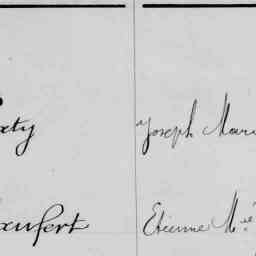 xty Joseph Mari
aufert Etienne M.ie